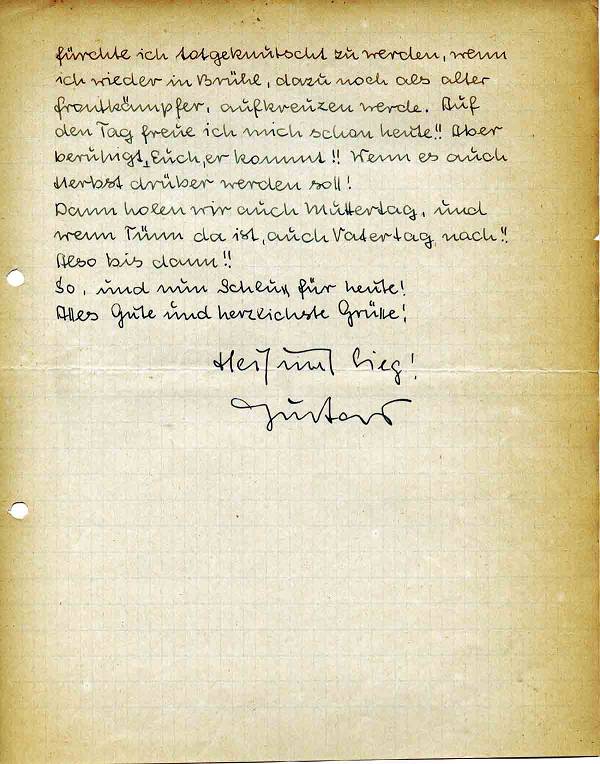 fürchte ich totgeknutscht zu werden, wenn
ich wieder in Brühl, dazu noch als alter
Frontkämpfer, aufkreuzen werde. Auf
den Tag freue ich mich schon heute!! Aber
beruhigt Euch, er kommt!! Wenn es auch
Herbst drüber werden soll!
Dann holen wir auch Muttertag, und
wenn Tünn da ist, auch Vatertag nach!!
Also bis dann!!
So, und nun Schluß für heute!
Alles Gute und herzlichste Grüße!
Heil und Sieg!
Gustav